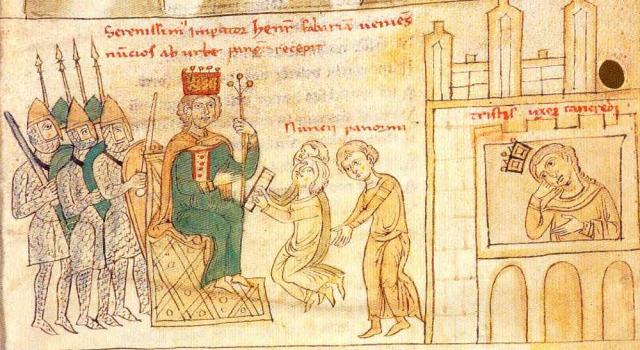 Serenissim᷒ impator henr̃ fabariã ueniẽs
nũcios ab urbe panor̃ recepit
Nuncii panormi
tristis uxor tancredi